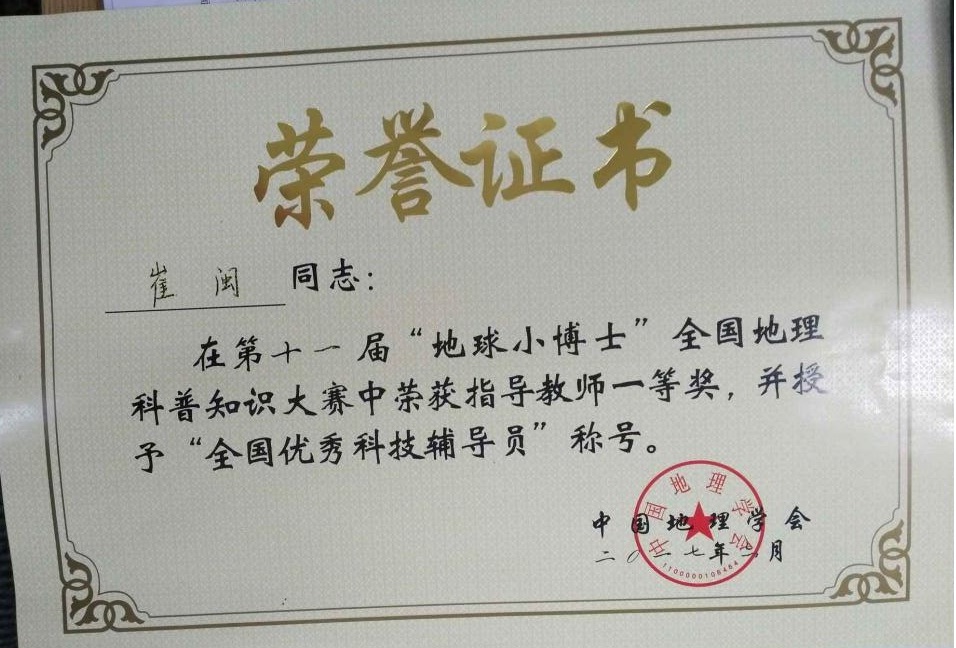 荣誉证书
崔闽同志：
在第十一届“地球小博士”全国地理
科普知识大赛中荣获指导教师一等奖，并授
予“全国优秀科技辅导员”称号。
中国地理学会
二〇一七年 月
中国地理学会